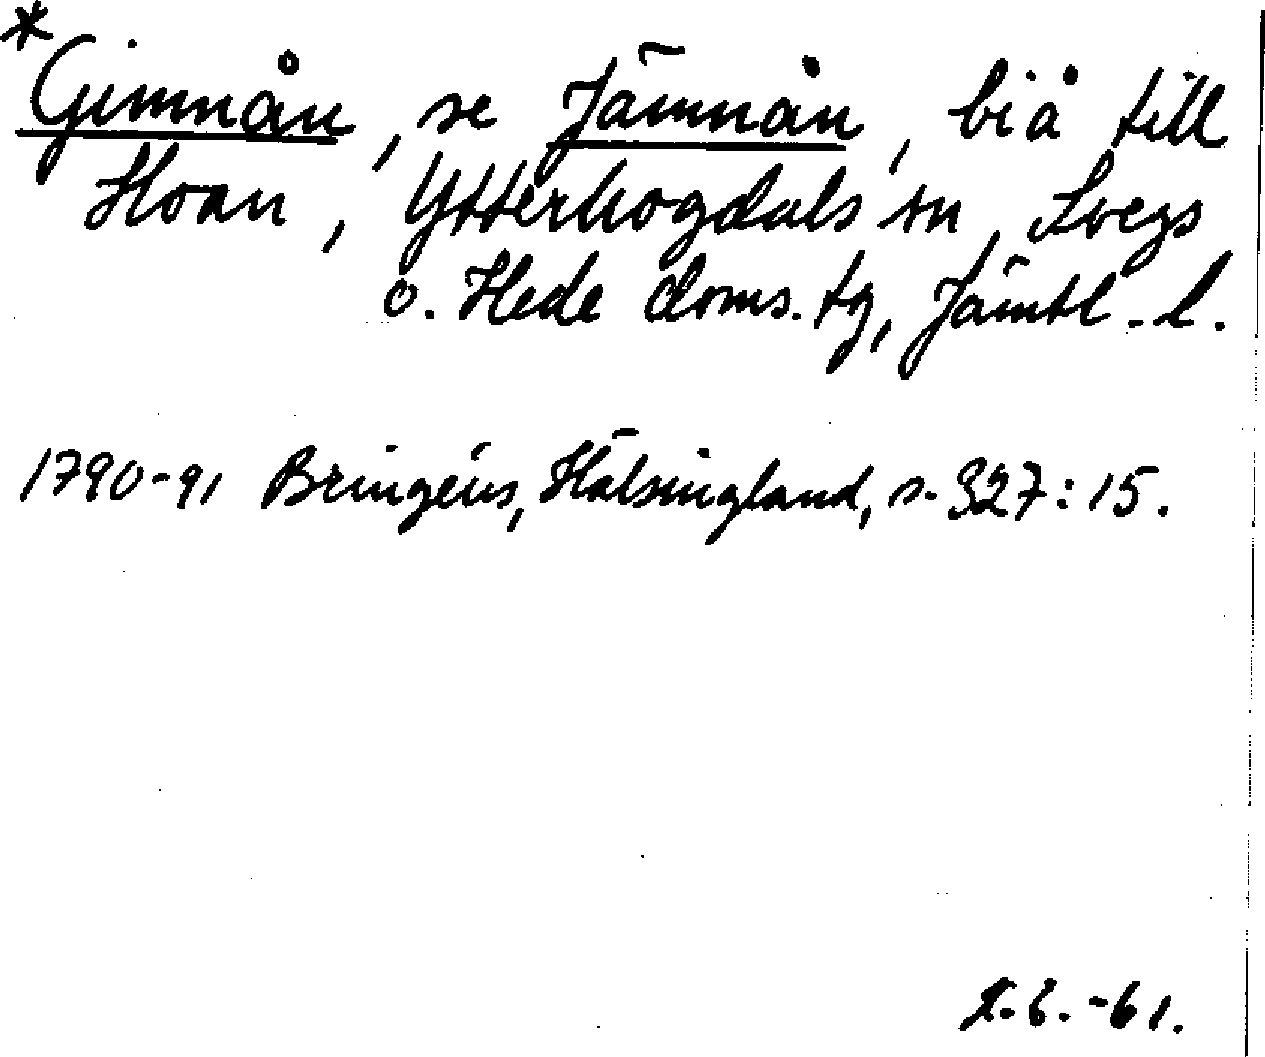 *Gimnån, se Jämnån, biå till
Hoan, Ytterhogdals sn, Svegs
o. Hede doms. tg, Jämtl. l.
1790-91 Bringéus, Hälsingland, s. 327:15.
L.E. -61.